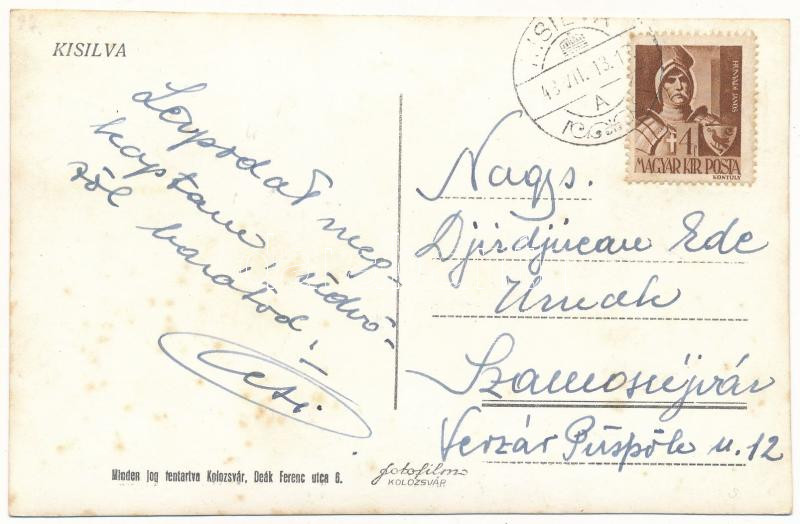 KISILVA
Lapodat meg-
kaptam, üdvö-
zöl barátod,
KISILVA
43.VII.13.
A
HUNYADI JÁNOS
4f
MAGYAR KIR. POSTA
KONTULY
Nagys.
Djirdjucan Ede
Urnak
Szamosújvár
Verzár Püspök u. 12
Minden jog fentartva Kolozsvár, Deák Ferenc utca 6.
fotofilm
KOLOZSVÁR